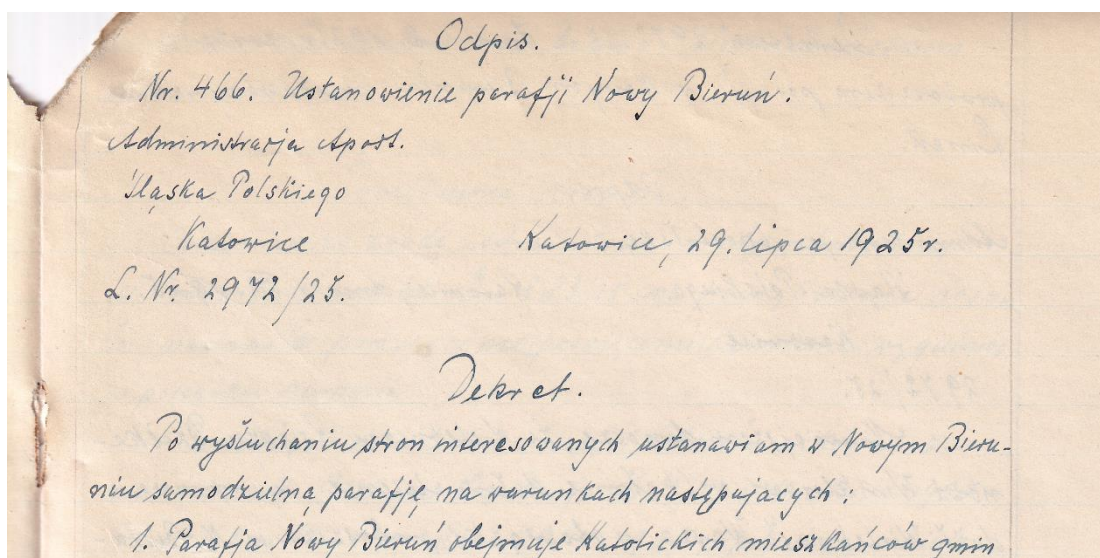 Odpis.
Nr. 466. Ustanowienie parafji Nowy Bieruń.
Administracja Apost.
Śląska Polskiego
Katowice
Katowice, 29. lipca 1925r.
L. Nr. 2972/25.
Dekret.
Po wysłuchaniu stron interesowanych ustanawiam w Nowym Bieru-
niu samodzielną parafję na warunkach następujacych:
1. Parafja Nowy Bieruń obejmuje Katolickich mieszkańców gmin